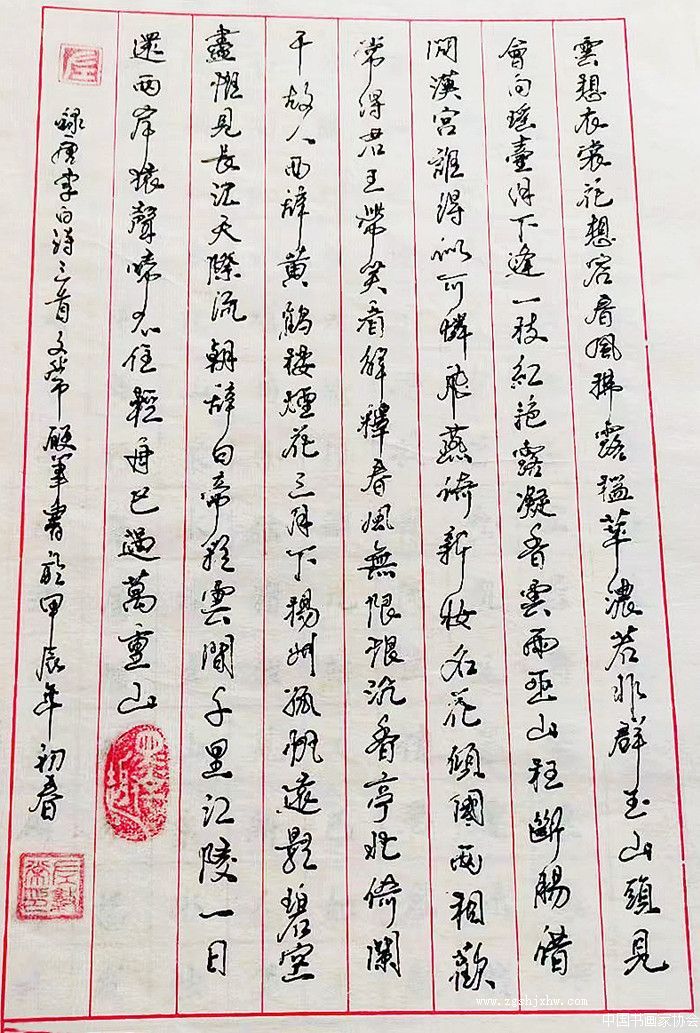 雲想衣裳花想容春風拂露檻華濃若非群玉山頭見
會向瑤臺月下逢一枝紅艷露凝香雲雨巫山枉斷腸借
問漢宮誰得似可憐飛燕倚新妝名花傾國兩相歡
常得君王帶笑看解釋春風無限恨沉香亭北倚闌
干故人西辭黃鶴樓煙花三月下揚州孤帆遠影碧空
盡惟見長江天際流朝辭白帝彩雲間千里江陵一日
還兩岸猿聲啼不住輕舟已過萬重山
錄唐李白詩三首文常硬筆書於甲辰年初春
www.zgshjxhw.com
中国书画家协会